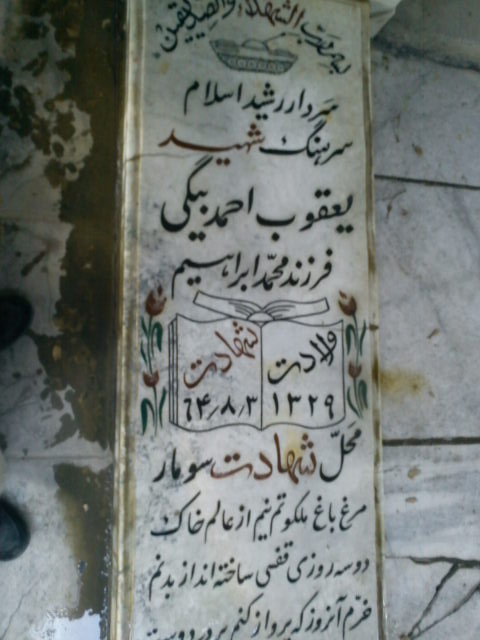 بسم رب الشهداء والصدیقین
سردار رشید اسلام
سرهنگ شهید
یعقوب احمد بیگی
فرزند محمد ابراهیم
ولادت شهادت
۱۳۲۹ ۶۴/۸/۳
محلّ شهادت سومار
مرغ باغ ملکوتم نیم از عالم خاک
دو سه روزی قفسی ساخته اند از بدنم
خرّم آنروز که پرواز کنم بر در دوست